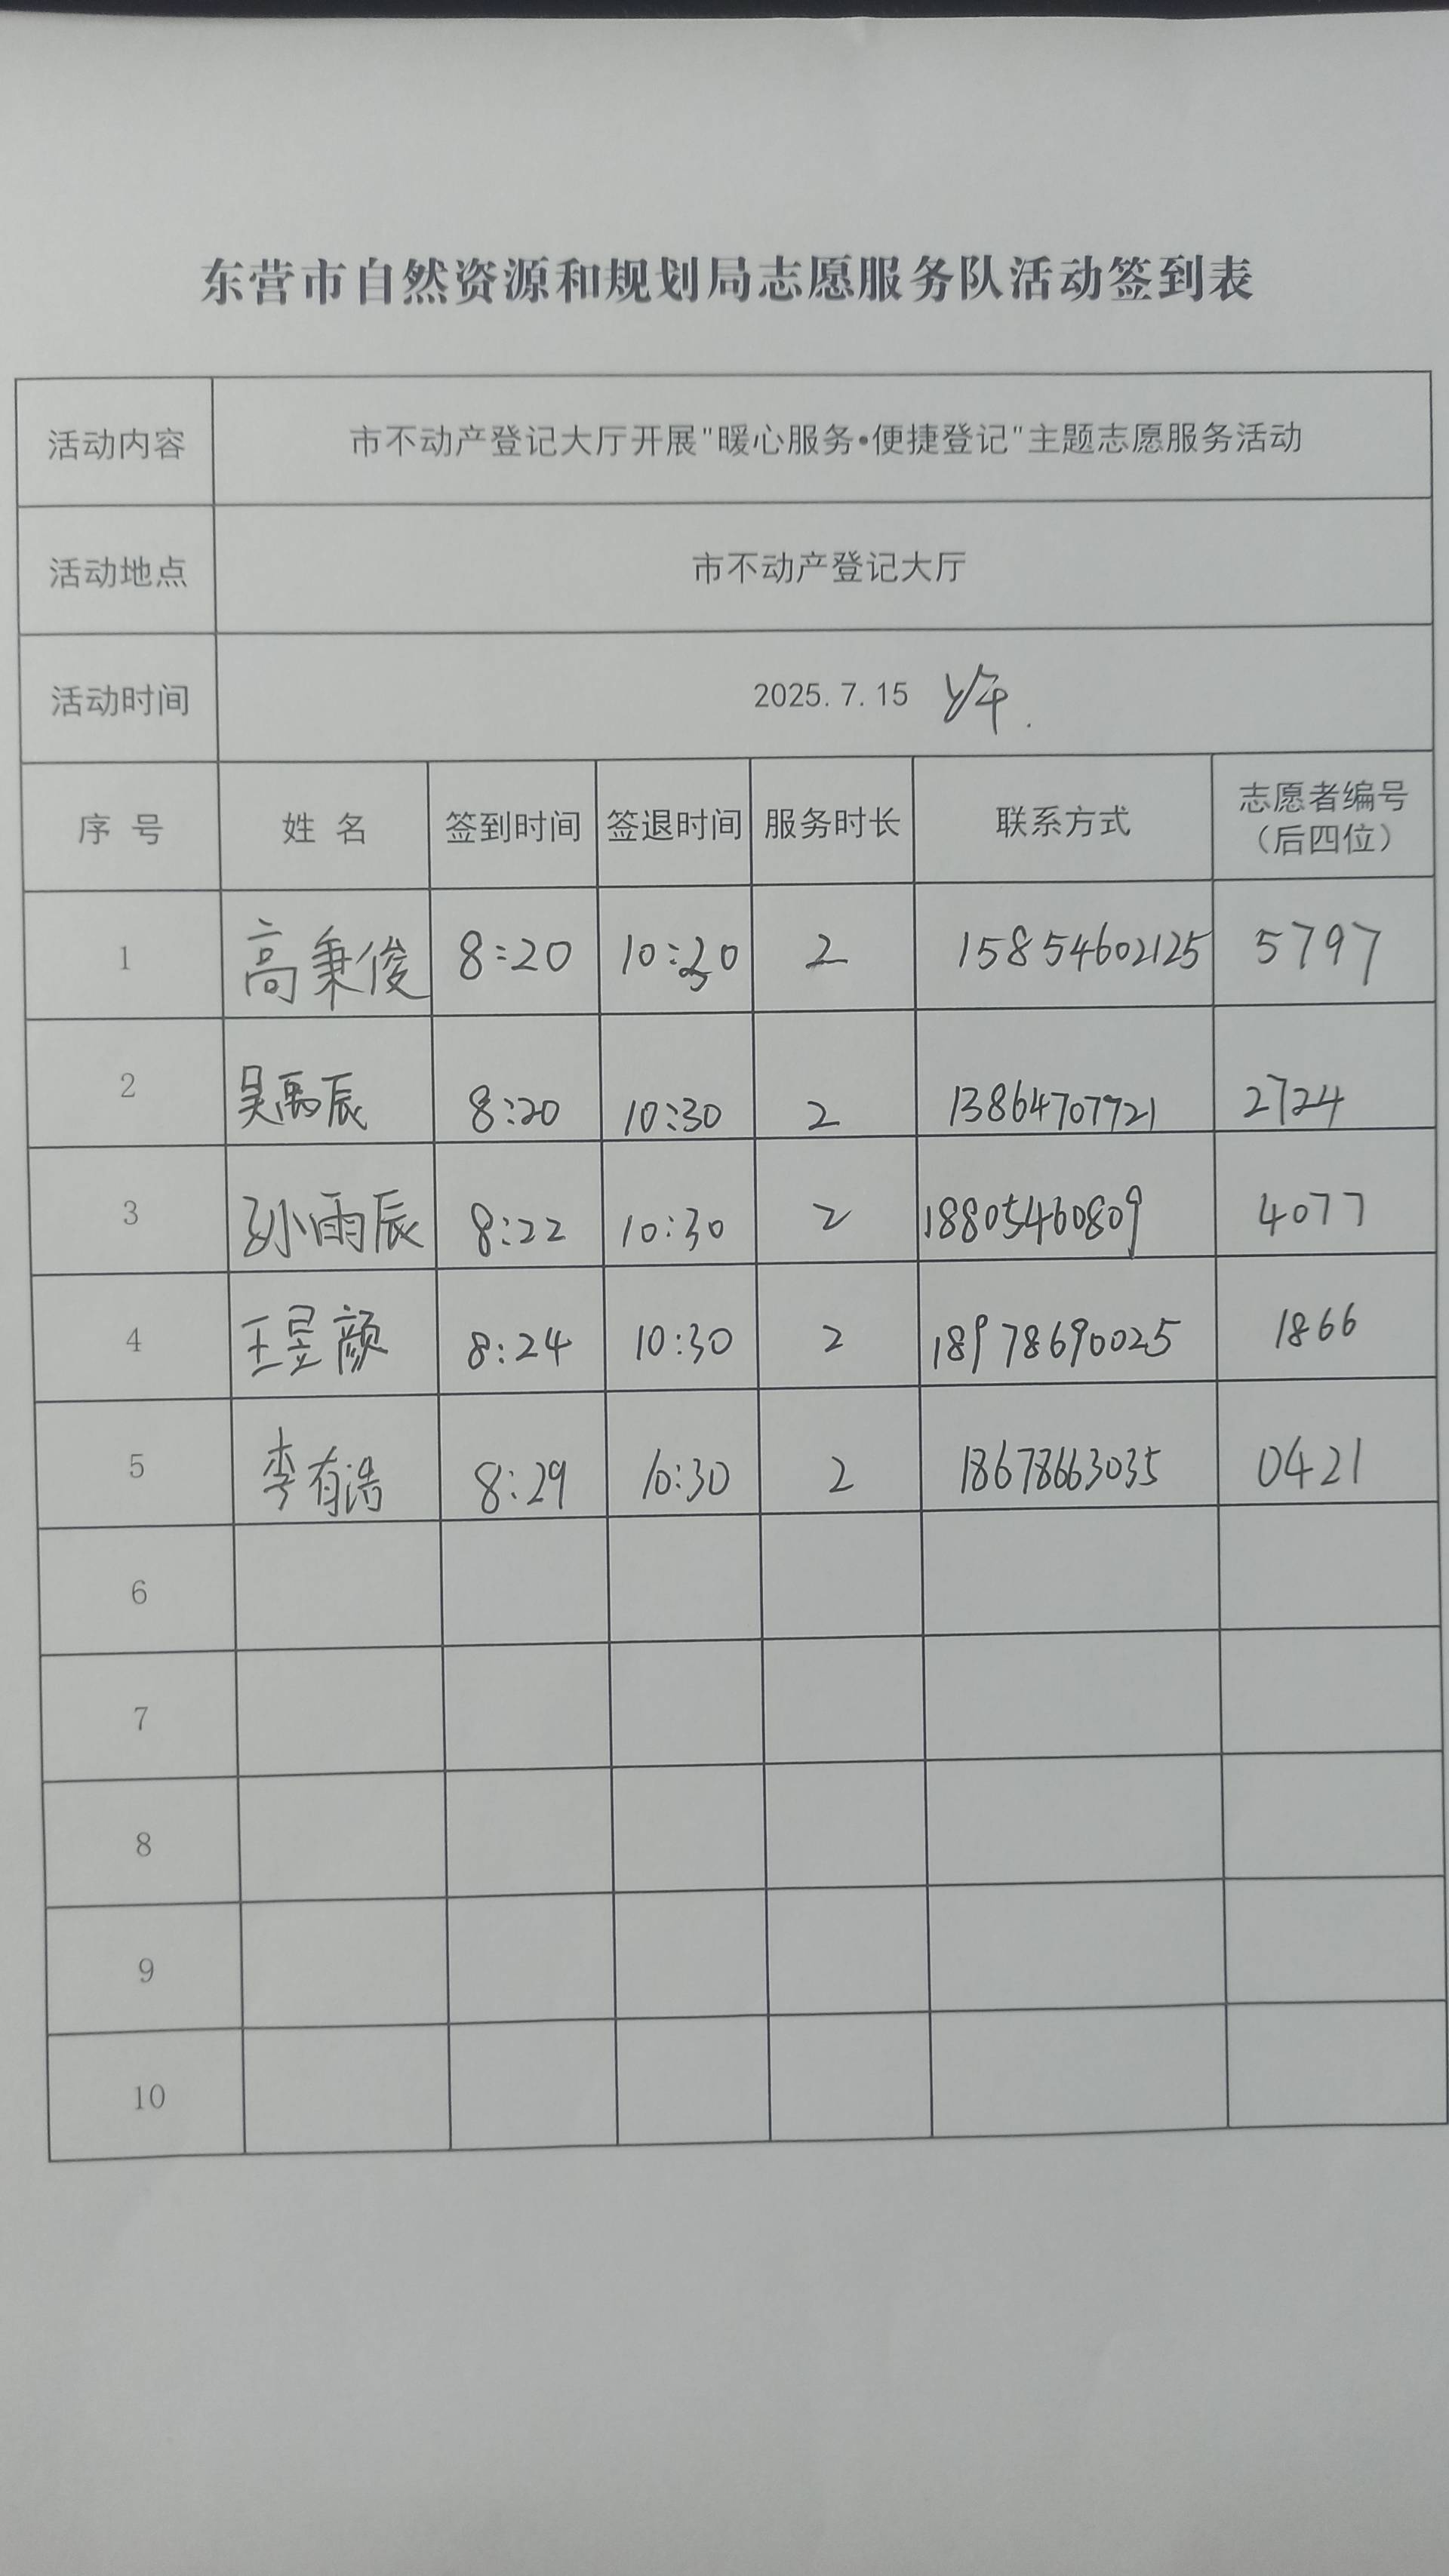 东营市自然资源和规划局志愿服务队活动签到表
活动内容 市不动产登记大厅开展"暖心服务•便捷登记"主题志愿服务活动
活动地点 市不动产登记大厅
活动时间 2025.7.15 上午.
序 号 姓 名 签到时间 签退时间 服务时长 联系方式 志愿者编号
（后四位）
1 高秉俊 8:20 10:30 2 15854602125 5797
2 吴禹辰 8:20 10:30 2 13864707721 2724
3 孙雨辰 8:22 10:30 2 18805460809 4077
4 王昱颜 8:24 10:30 2 18978690025 1866
5 李有浩 8:29 10:30 2 18678663035 0421
6
7
8
9
10